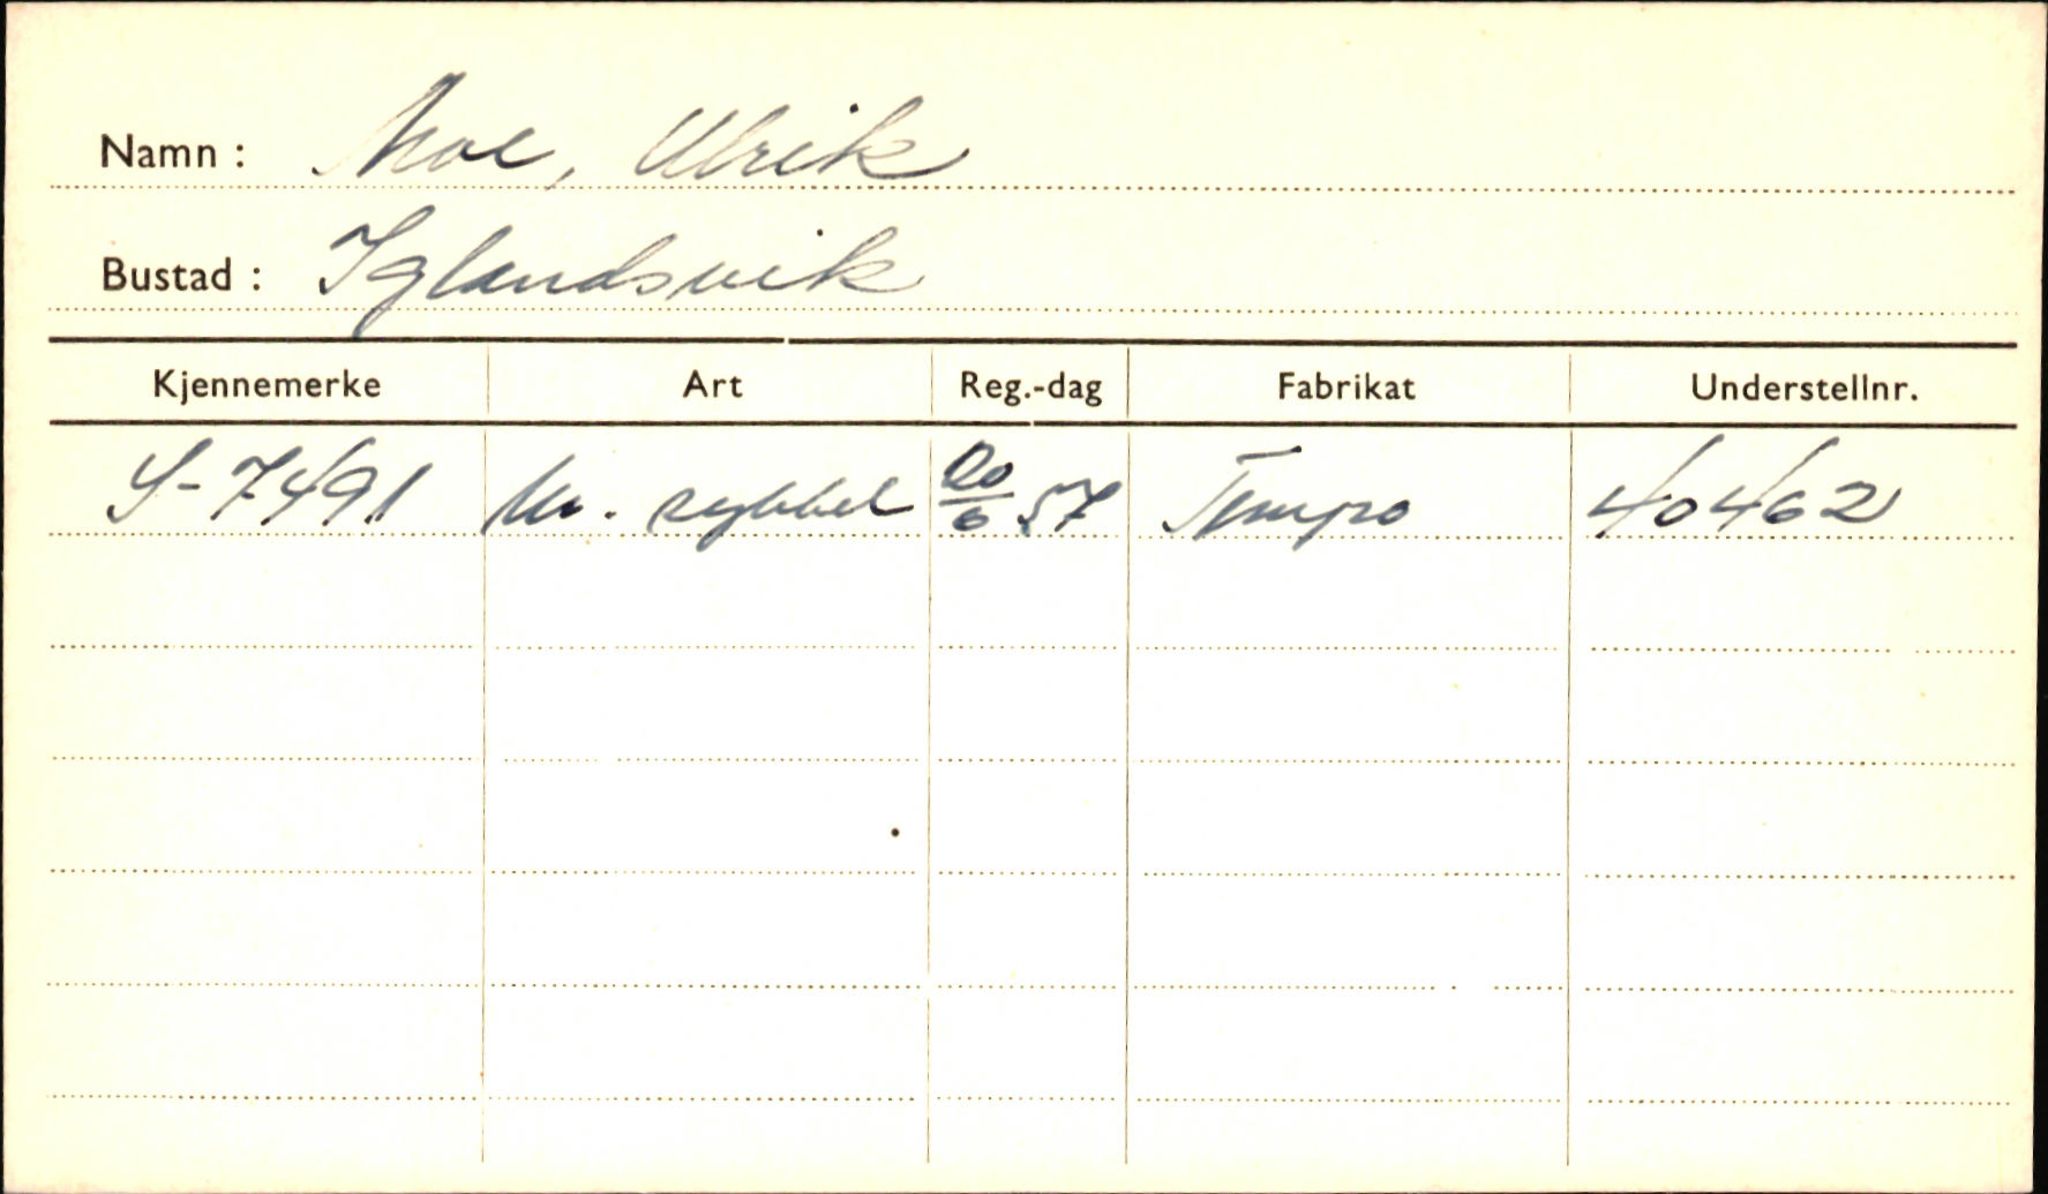 Namn : Moe, Ulrik
Bustad : Iglandsvik
Kjennemerke Art Reg.-dag Fabrikat Understellnr.
S-7491 M. sykkel 20/6 57 Tempo 40462